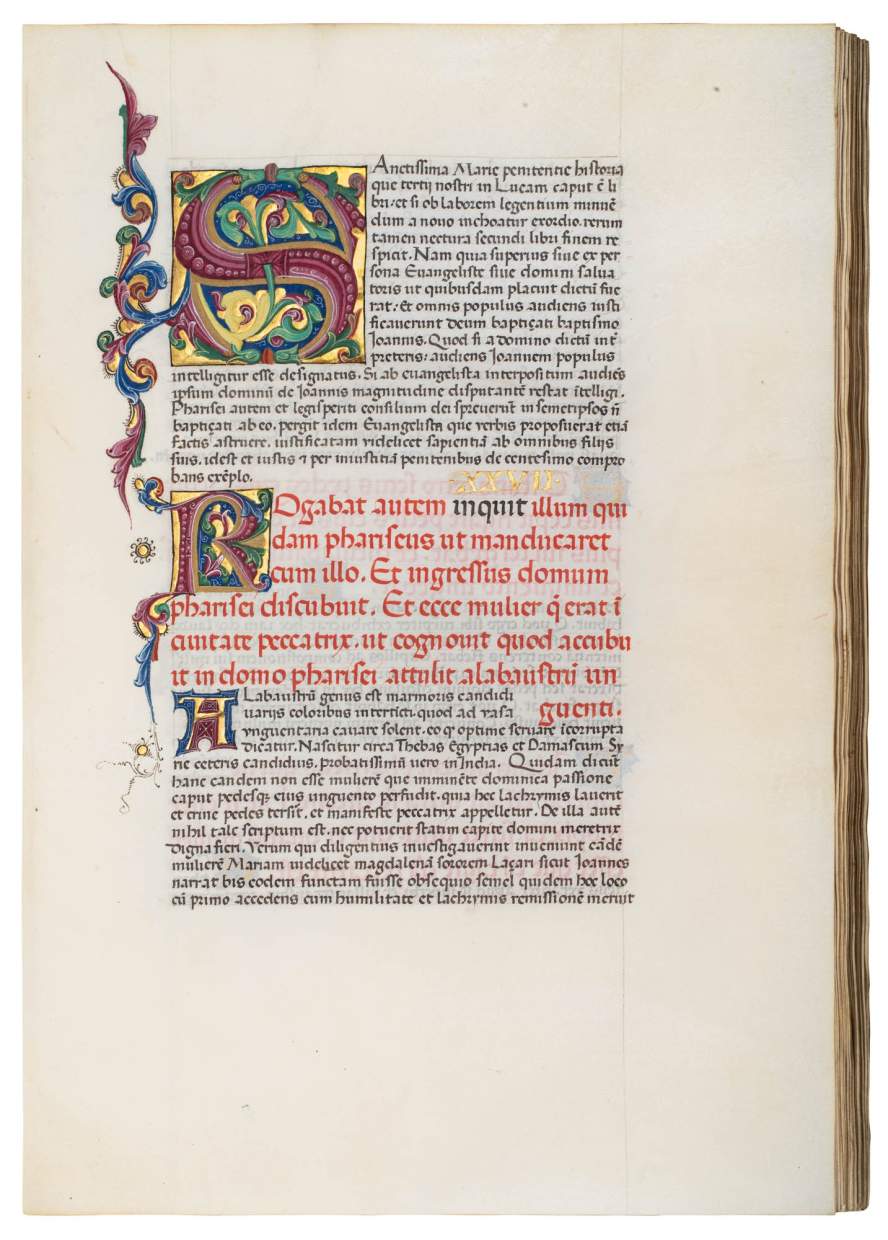 SAnctissima Marie penitentie historia
que tertij nostri in Lucam caput ē li
bri: et si ob laborem legentium minuē
dum a nouo inchoatur exordio. rerum
tamen nectura secundi libri finem re
spicit. Nam quia superius siue ex per
sona Euangeliste siue domini salua
toris ut quibusdam placuit dictū fue
rat: Et omnis populus audiens iusti
ficauerunt deum baptiçati baptismo
Ioannis. Quod si a domino dictū int̄
preteris: audiens Ioannem populus
intelligitur esse designatus. Si ab euangelista interpositum audiēs
ipsum dominū de Ioannis magnitudine disputantē restat ītelligi.
Pharisei autem et legisperiti consilium dei spreuerūt in semetipsos n̄
baptiçati ab eo. pergit idem Euangelista que verbis proposuerat etiā
factis astruere. iustificatam videlicet sapientiā ab omnibus filijs
suis. idest et iustis ⁊ per iniustitiā penitentibus de centesimo compro
bans exēplo.
XXVII
ROgabat autem inquit illum qui
dam phariseus ut manducaret
cum illo. Et ingressus domum
pharisei discubuit. Et ecce mulier q̄ erat ī
ciuitate peccatrix. ut cognouit quod accubu
it in domo pharisei attulit alabaustrū un
guenti.
ALabaustrū genus est marmoris candidi
uarijs coloribus intertīcti. quod ad vasa
vnguentaria cauare solent. eo q̄ optime seruare īcorrupta
dicatur. Nascitur circa Thebas Egyptias et Damascum Sy
rie ceteris candidius. probatissimū uero in India. Quidam dicūt
hanc eandem non esse mulierē que imminēte dominica passione
caput pedesq; eius unguento perfudit. quia hec lachrymis lauerit
et crine pedes tersit. et manifeste peccatrix appelletur. De illa autē
nihil tale scriptum est. nec potuerit statim capite domini meretrix
digna fieri. Verum qui diligentius inuestigauerint inueniunt eādē
mulierē Mariam uidelicet magdalenā sororem Laçari sicut Ioannes
narrat bis eodem functam fuisse obsequio semel quidem hoc loco
cū primo accedens cum humilitate et lachrymis remissionē meruit